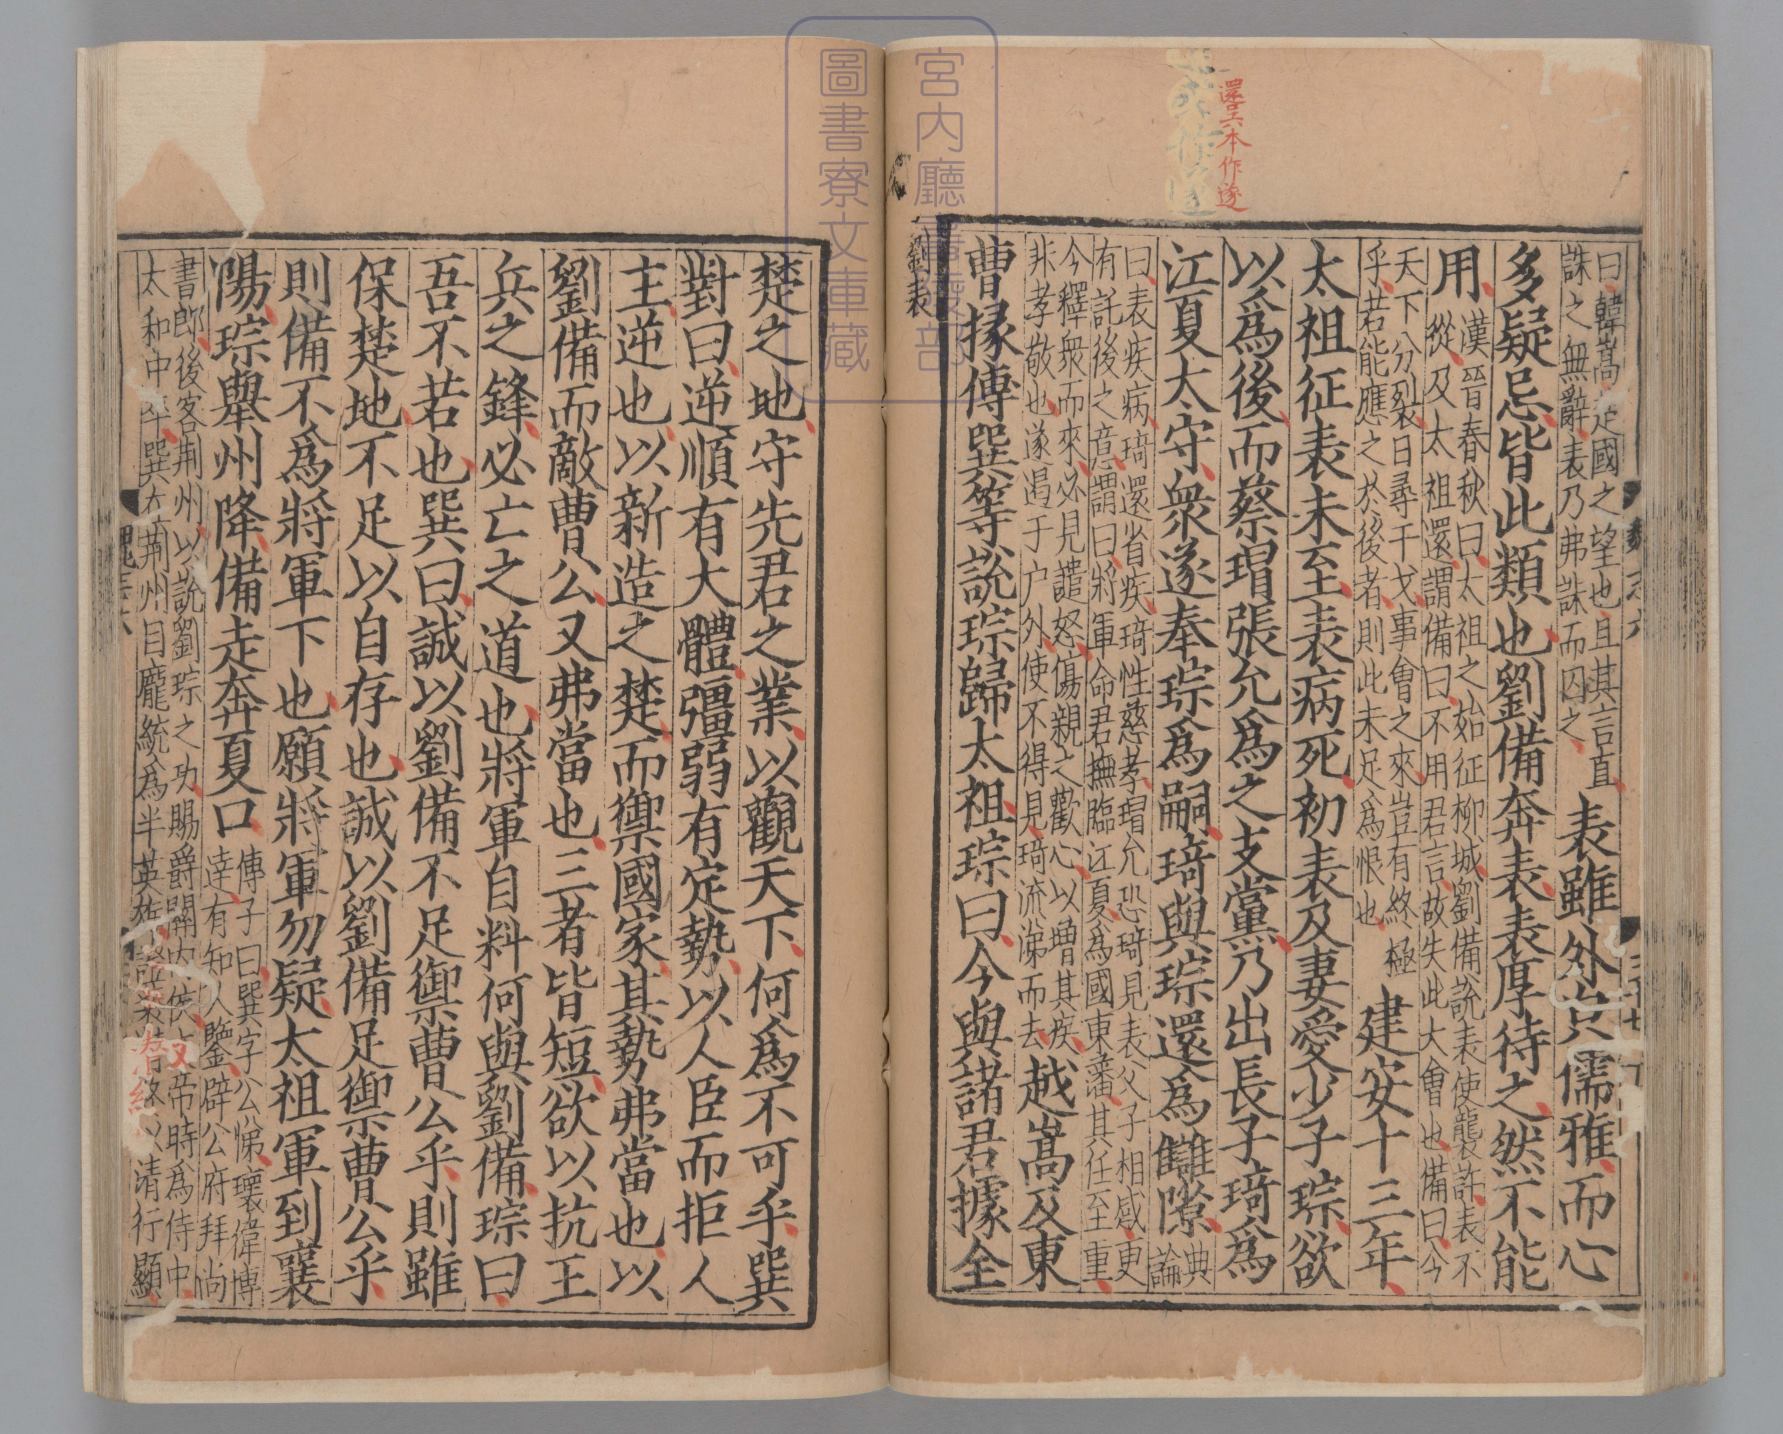 還吳本作遂
曰韓嵩楚國之望也且其言直
誅之無辭表乃弗誅而囚之
表雖外皃儒雅而心
多疑忌皆此類也劉備奔表表厚待之然不能
用
漢晉春秋曰太祖之始征柳城劉備說表使襲許表不
從及太祖還謂備曰不用君言故失此大會也備曰今
天下分裂日尋干戈事會之來豈有終極
乎若能應之於後者則此未足爲恨也
建安十三年
太祖征表未至表病死初表及妻愛少子琮欲
以爲後而蔡瑁張允爲之支黨乃出長子琦爲
江夏太守衆遂奉琮爲嗣琦與琮還爲讎隙
典
論
曰表疾病琦還省疾琦性慈孝瑁允恐琦見表父子相感更
有託後之意謂曰將軍命君撫臨江夏爲國東藩其任至重
今釋衆而來必見譴怒傷親之歡心以增其疾
非孝敬也遂遏于户外使不得見琦流涕而去
越嵩及東
曹掾傅巽等說琮歸太祖琮曰今與諸君據全
劉表
楚之地守先君之業以觀天下何爲不可乎巽
對曰逆順有大體彊弱有定勢以人臣而拒人
主逆也以新造之楚而禦國家其勢弗當也以
劉備而敵曹公又弗當也三者皆短欲以抗王
兵之鋒必亡之道也將軍自料何與劉備琮曰
吾不若也巽曰誠以劉備不足禦曹公乎則雖
保楚地不足以自存也誠以劉備足禦曹公乎
則備不爲將軍下也願將軍勿疑太祖軍到襄
陽琮舉州降備走奔夏口
傅子曰巽字公悌瓌偉博
達有知人鑒辟公府拜尚
書郎後客荆州以說劉琮之功賜爵關内侯文帝時爲侍中
太和中卒巽在荆州目龐統爲半英雄證裴潛終以清行顯
宮内廳書陵部
圖書寮文庫藏